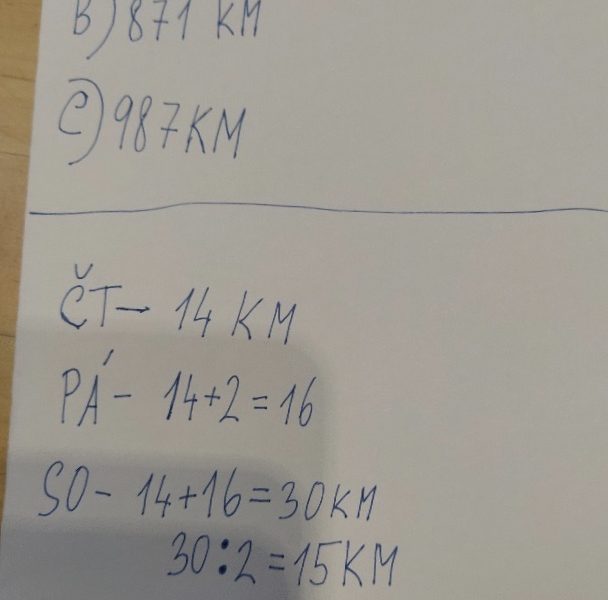 B) 871 KM
C) 987 KM
ČT- 14 KM
PÁ- 14+2=16
SO- 14+16=30KM
30:2=15KM